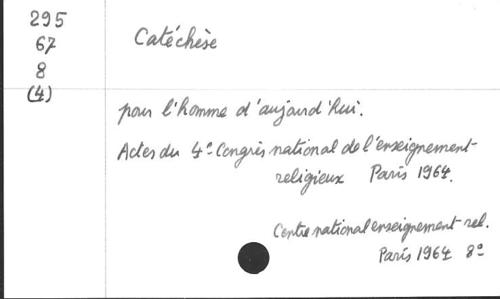 295
67
8
(4)
Catéchèse
pour l'homme d'aujourd'hui.
Actes du 4e Congrès national de l'enseignement
religieux Paris 1964.
Centre national enseignement rel.
Paris 1964 8°